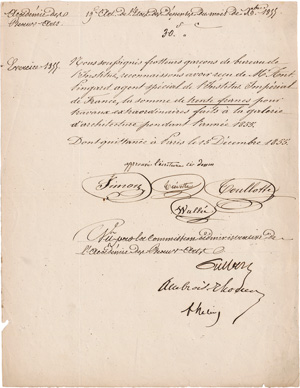 Académie des
Beaux-Arts
19 Art. de l'État des Dépenses du mois de Xbre 1855
30. f c
Exercice 1855.
Nous soussignés frotteurs garçons de bureau de
l'Institut, reconnaissons avoir reçu de Mr
Pingard agent spécial de l'Institut Impérial
de France, la somme de trente francs pour
travaux extraordinaires faits à la galerie
d'architecture pendant l'année 1855.
Dont quittance à Paris le 15 Décembre 1855.
approuvé l'écriture ci dessus
Simon
Vallée
Vu par la Commission administrative de
l'Académie des Beaux-Arts